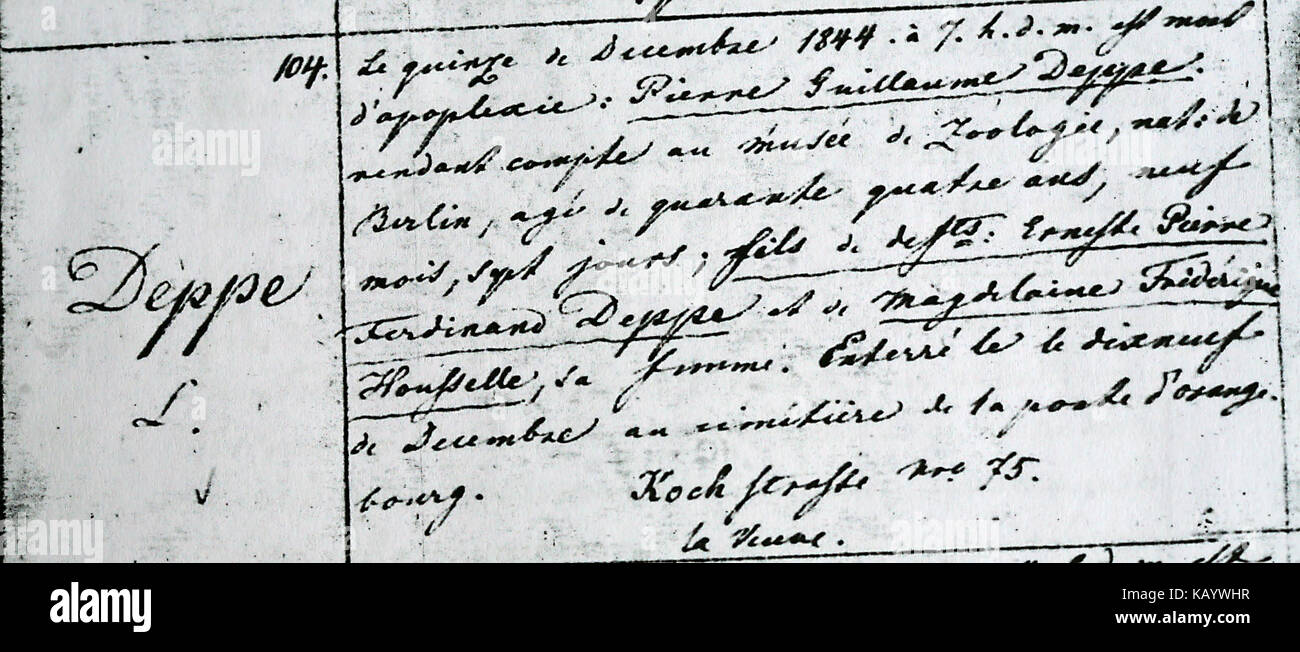 104. Le quinze de Decembre 1844. à 7. h. d. m. est mort
d'apoplexie: Pierre Guillaume Deppe.
rendant compte au Musée de Zoologie, nat: de
Berlin, agé de quarante quatre ans, neuf
mois, sept jours; fils de defts: Erneste Pierre
Ferdinand Deppe et de Magdelaine Frédérique
Housselle, sa femme. Enterré le le dixneuf
de Decembre au cimitière de la porte d'orang-
bourg. Koch strasse Nro. 75.
la Veuve.
Deppe
L.
alamy
alamy
alamy
alamy
Image ID: KAYWHR
www.alamy.com